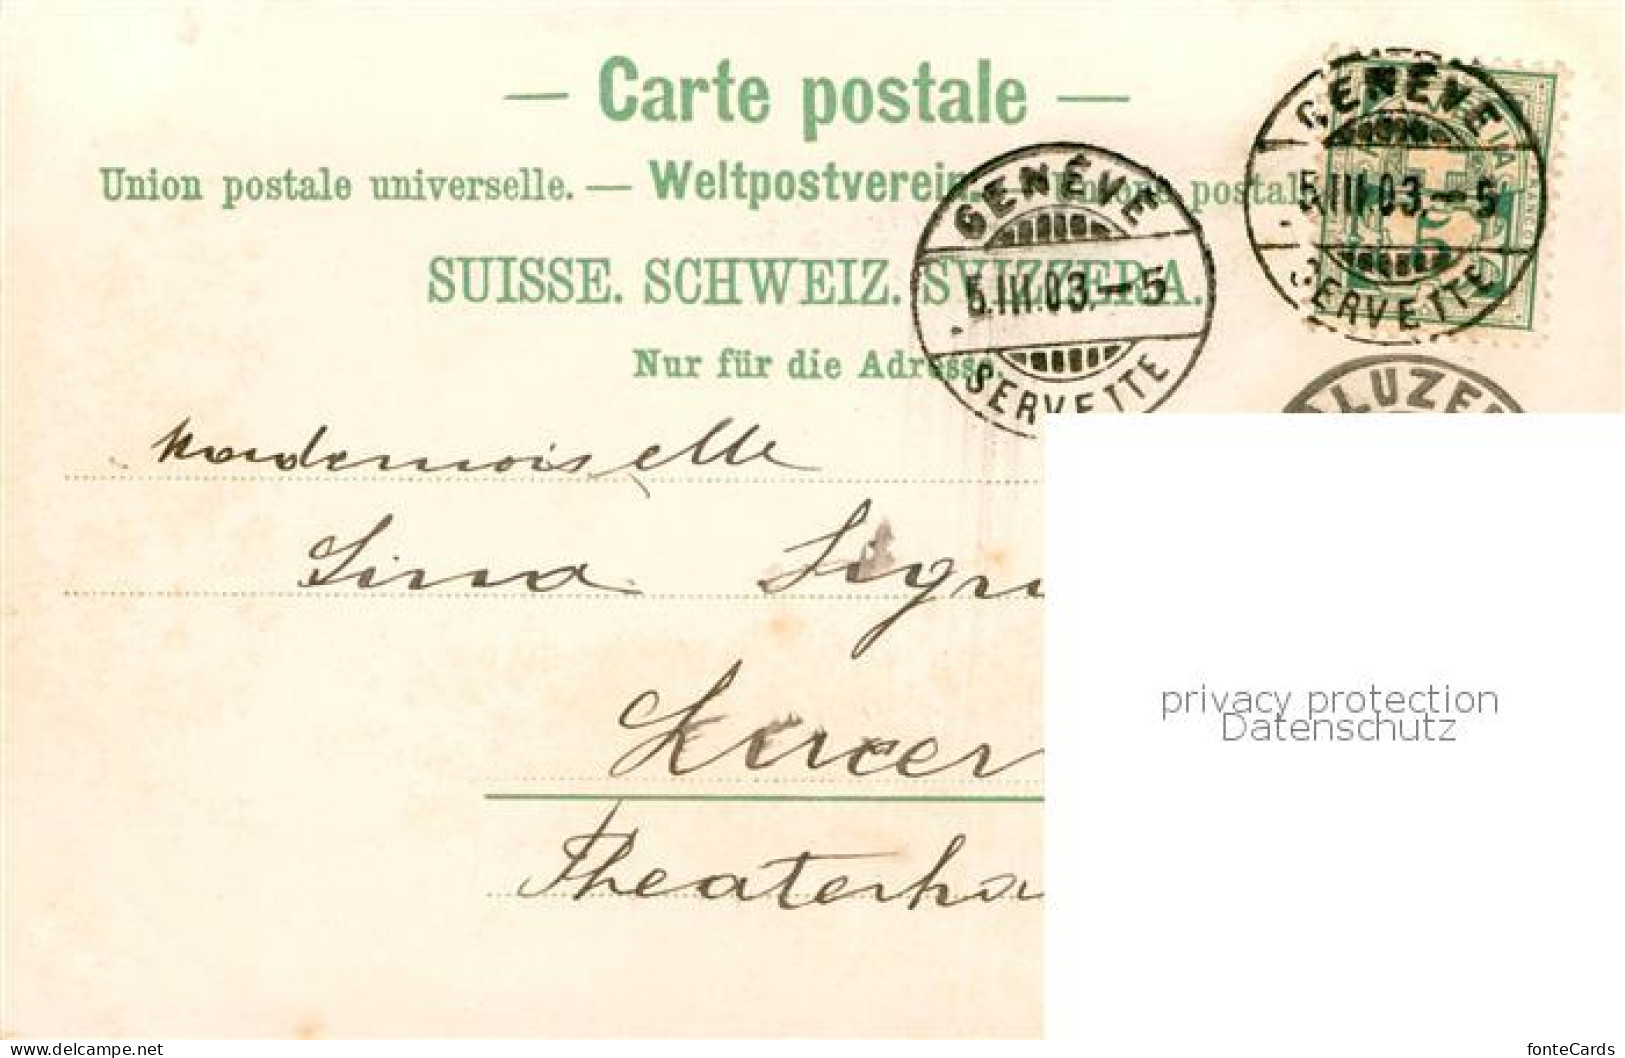 — Carte postale —
Union postale universelle. — Weltpostverein.
SUISSE. SCHWEIZ. SVIZZERA.
Nur für die Adresse.
GENÈVE
5.III.03.–5
SERVETTE
GENÈVE
5.III.03.–5
SERVETTE
LUZE
Mademoiselle
Lina
Luzer
Theaterha
privacy protection
Datenschutz
www.delcampe.net
fonteCards